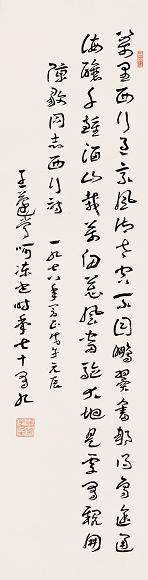 万里西行急，乘风御太空。不因鹏翼展，哪得鸟途通。
海酿千钟酒，山栽万仞葱。风雷驱大地，是处有亲朋。
陈毅同志西行诗 一九七八年
王蘧常 时年七十有九